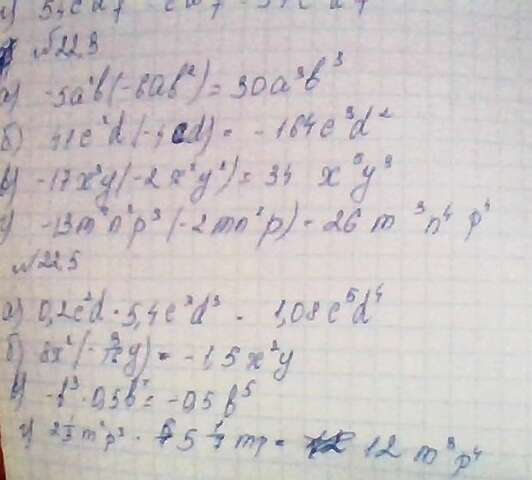 №22.3
а) -5a²b(-6ab²) = 30a³b³
б) 41c²d(-4cd) = -164c³d²
в) -17x³y(-2x²y²) = 34 x⁵y³
г) -13m²n²p³(-2mn²p) = 26 m³n⁴p⁴
№22.5
а) 0,2c²d · 5,4c³d³ = 1,08c⁵d⁴
в) -b³ · 0,5b² = -0,5b⁵
г) 2⅓m²p³ · 5⅐mp = 12 m³p⁴